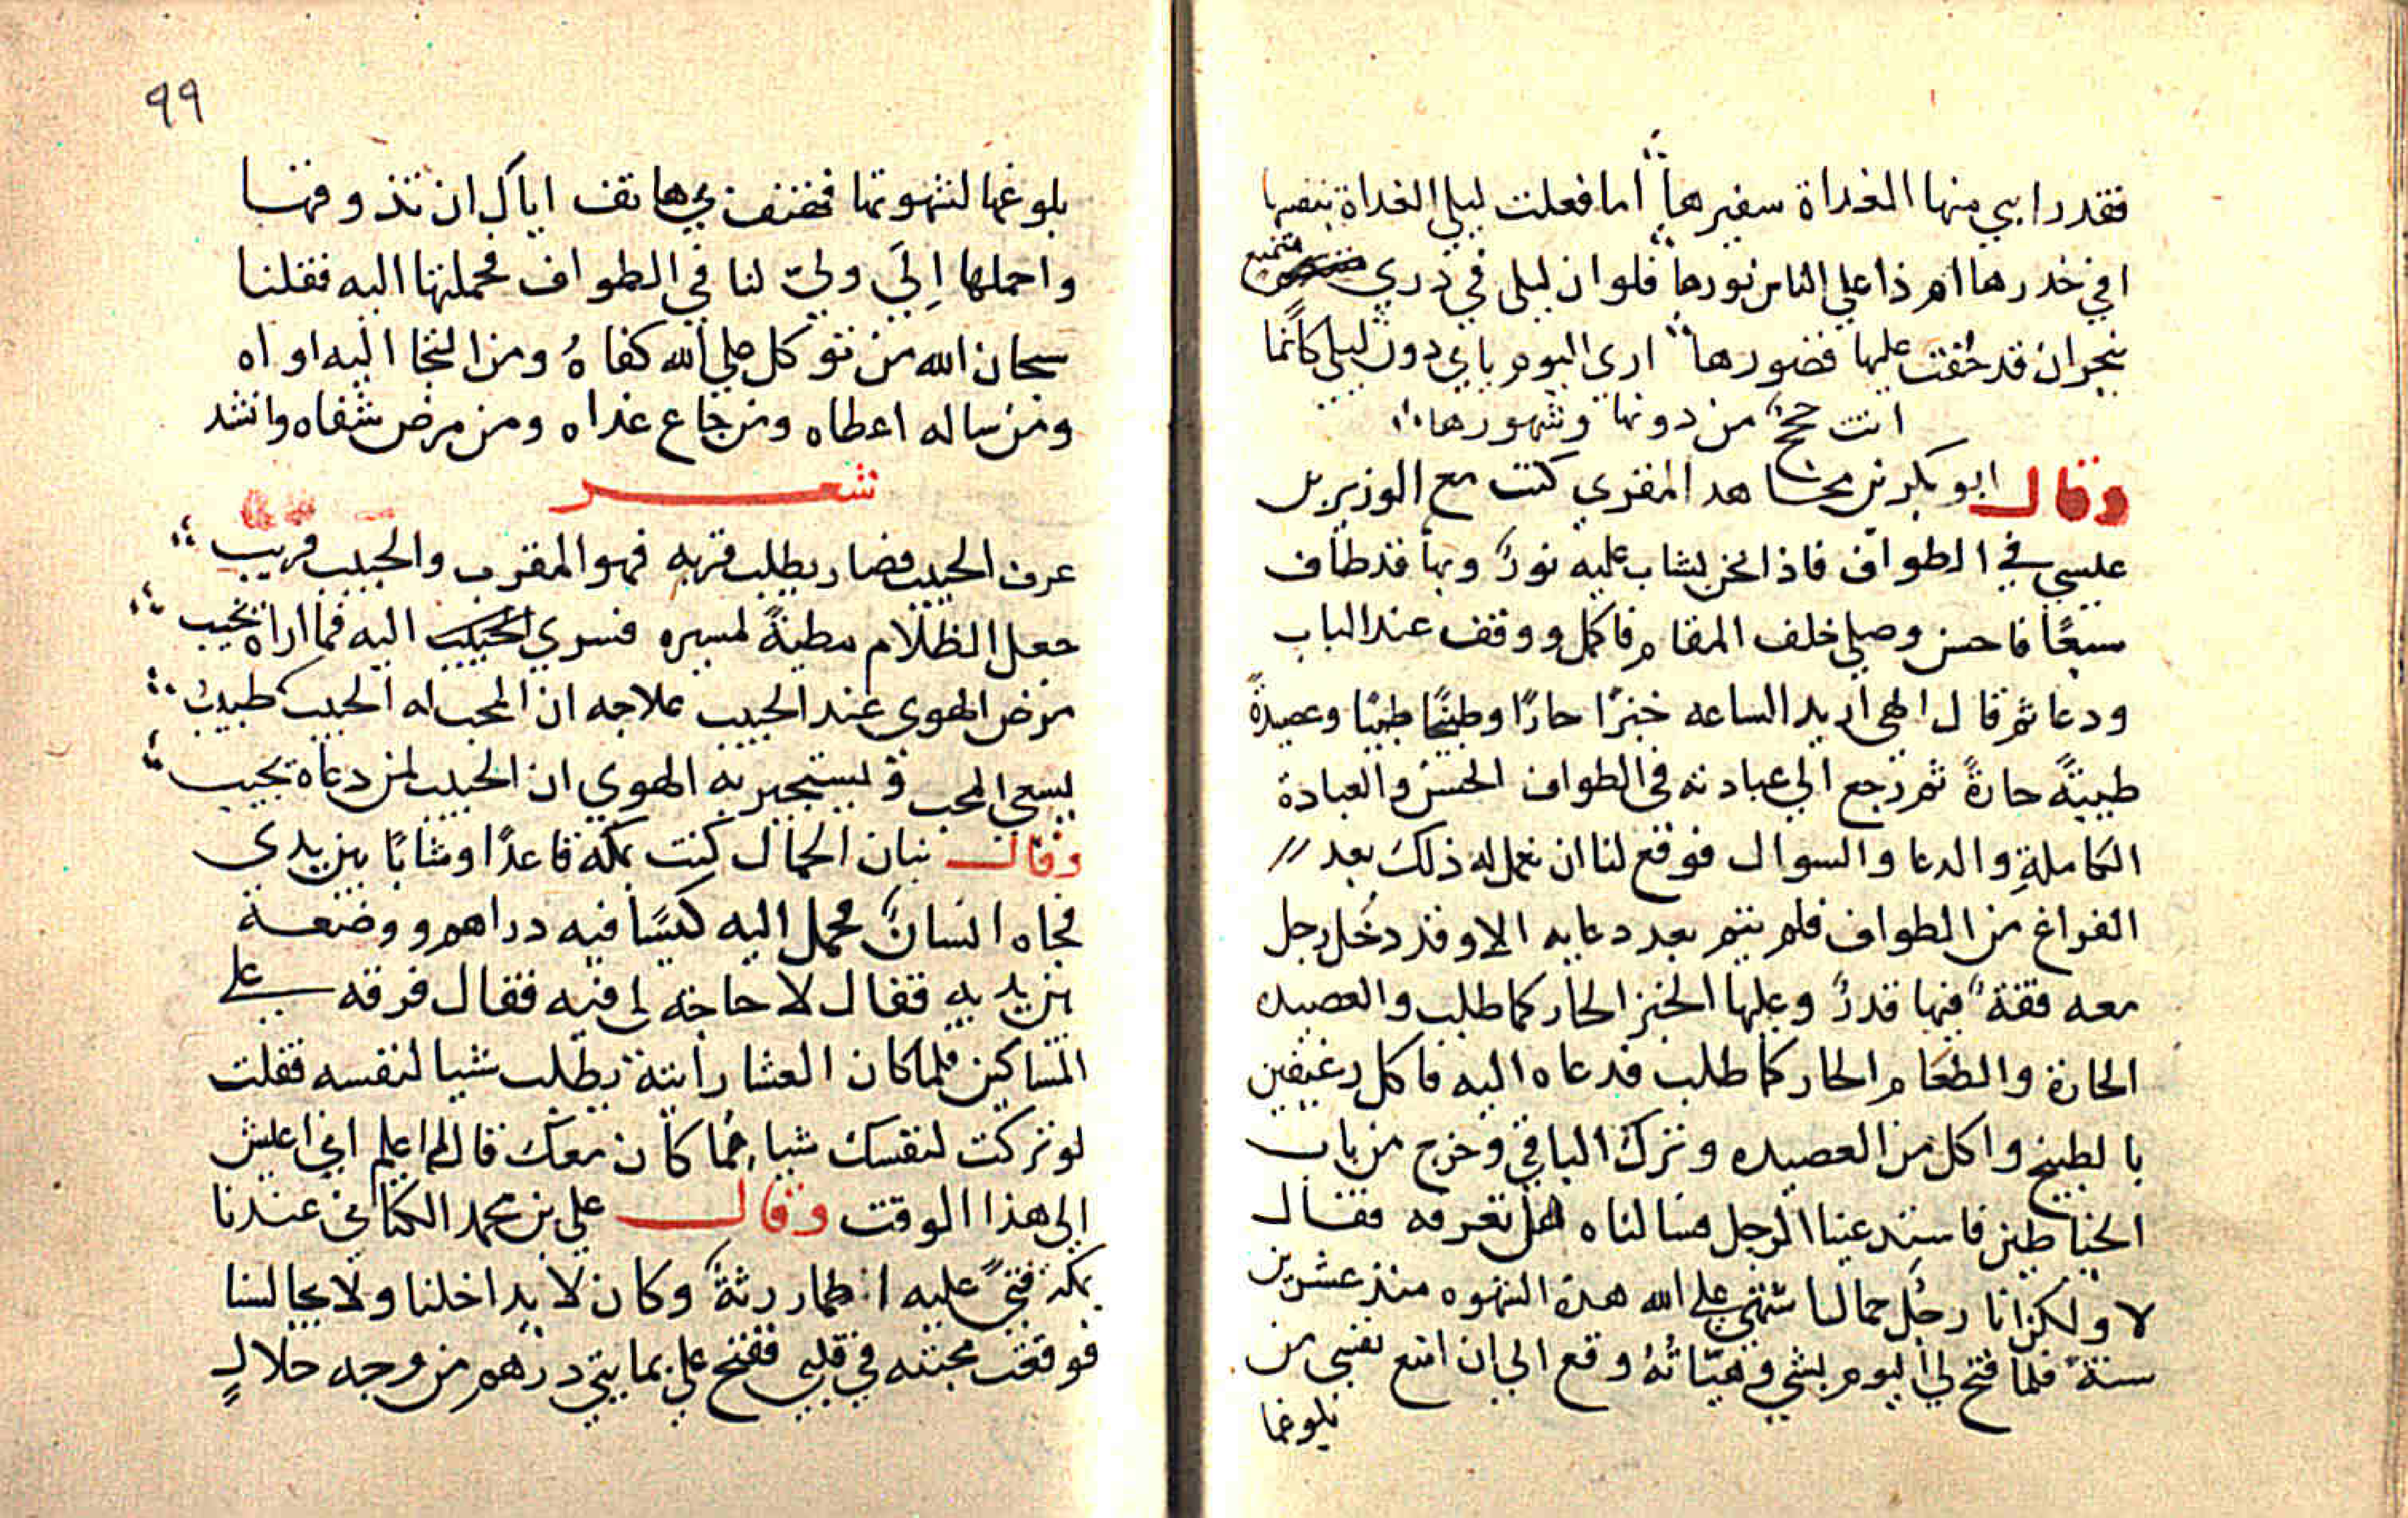 فقد رابني منها الغداة سفيرها اما فعلت ليلي الغداة بنفسها
افي خدرها ام ذا علي الناس نورها فلوان ليلى في ذري متمنع
بنجران قد حفت عليها قصورها ارى اليوم ياتي دون ليلى كانما
اتت حجج من دونها وشهورها
وقال ابو بكر بن مجاهد المقري كنت مع الوزير بن
عيسي في الطواف فاذا نحن بشاب عليه نور وبها قد طاف
سبعًا فاحسن وصلي خلف المقام فاكمل ووقف عند الباب
ودعا ثم قال الهى اريد الساعه خبزًا حارًا وطبيخًا طيبًا وعصيدةً
طيبيةً حارةً ثم رجع الي عبادته في الطواف الحسن والعبادة
الكاملةِ والدعا والسوال فوقع لنا ان نعمل له ذلك بعد
الفراغ من الطواف فلم يتم بعد دعايه الا وقد دخل رجل
معه قفة فيها قدر وعليها الخبز الحار كما طلب والعصيده
الحارة والطعام الحار كما طلب فدعاه اليه فاكل رغيفين
بالطبيخ واكل من العصيده وترك الباقي وخرج من باب
الحناطين فاستدعينا الرجل فسالناه هل تعرفه فقال
لا ولكن انا رجُل حمال اشتهي علي الله هذه الشهوه منذ عشرين
سنة فلما فتح لي اليوم بشي وهيّاتهُ وقع الي ان امنع نفسي من
بلوغها
٩٩
بلوغها لشهوتها فهتف بي هاتف اياك ان تذوقها
واحملها اِلَي وليّ لنا في الطواف فحملتها اليه فقلنا
سبحان الله من توكل علي الله كفاهُ ومن التجا اليه اواه
ومن ساله اعطاه ومن جاع غداه ومن مرض شفاه وانشد
شعر
عرف الحبيب فصار يطلب قربه فهو المقرب والحبيب قريب
جعل الظلام مطيةً لمسيره فسري الحبيب اليه فما اراه يخيب
مرض الهوى عند الحبيب علاجه ان المحب له الحبيب طبيب
يسعى المحب ويستجير به الهوي ان الحبيب لمن دعاه يجيب
وقال بنان الحمال كنت بمكة قاعدًا وشابًا بين يدي
فجاه انسان فحمل اليه كيسًا فيه دراهم ووضعه
بين يديه فقال لا حاجة لي فيه فقال فرقه علي
المساكين فلما كان العشا رايته يطلب شيا لنفسه فقلت
لو تركت لنفسك شيا مما كان معك قال لم اعلم اني اعيش
الي هذا الوقت وقال علي بن محمد الكتاني عندنا
بمكة فتيً عليه اطمار رثة وكان لا يداخلنا ولا يجالسنا
فوقعت محبته في قلبي ففتح علي بمايتي درهم من وجه حلالٍ